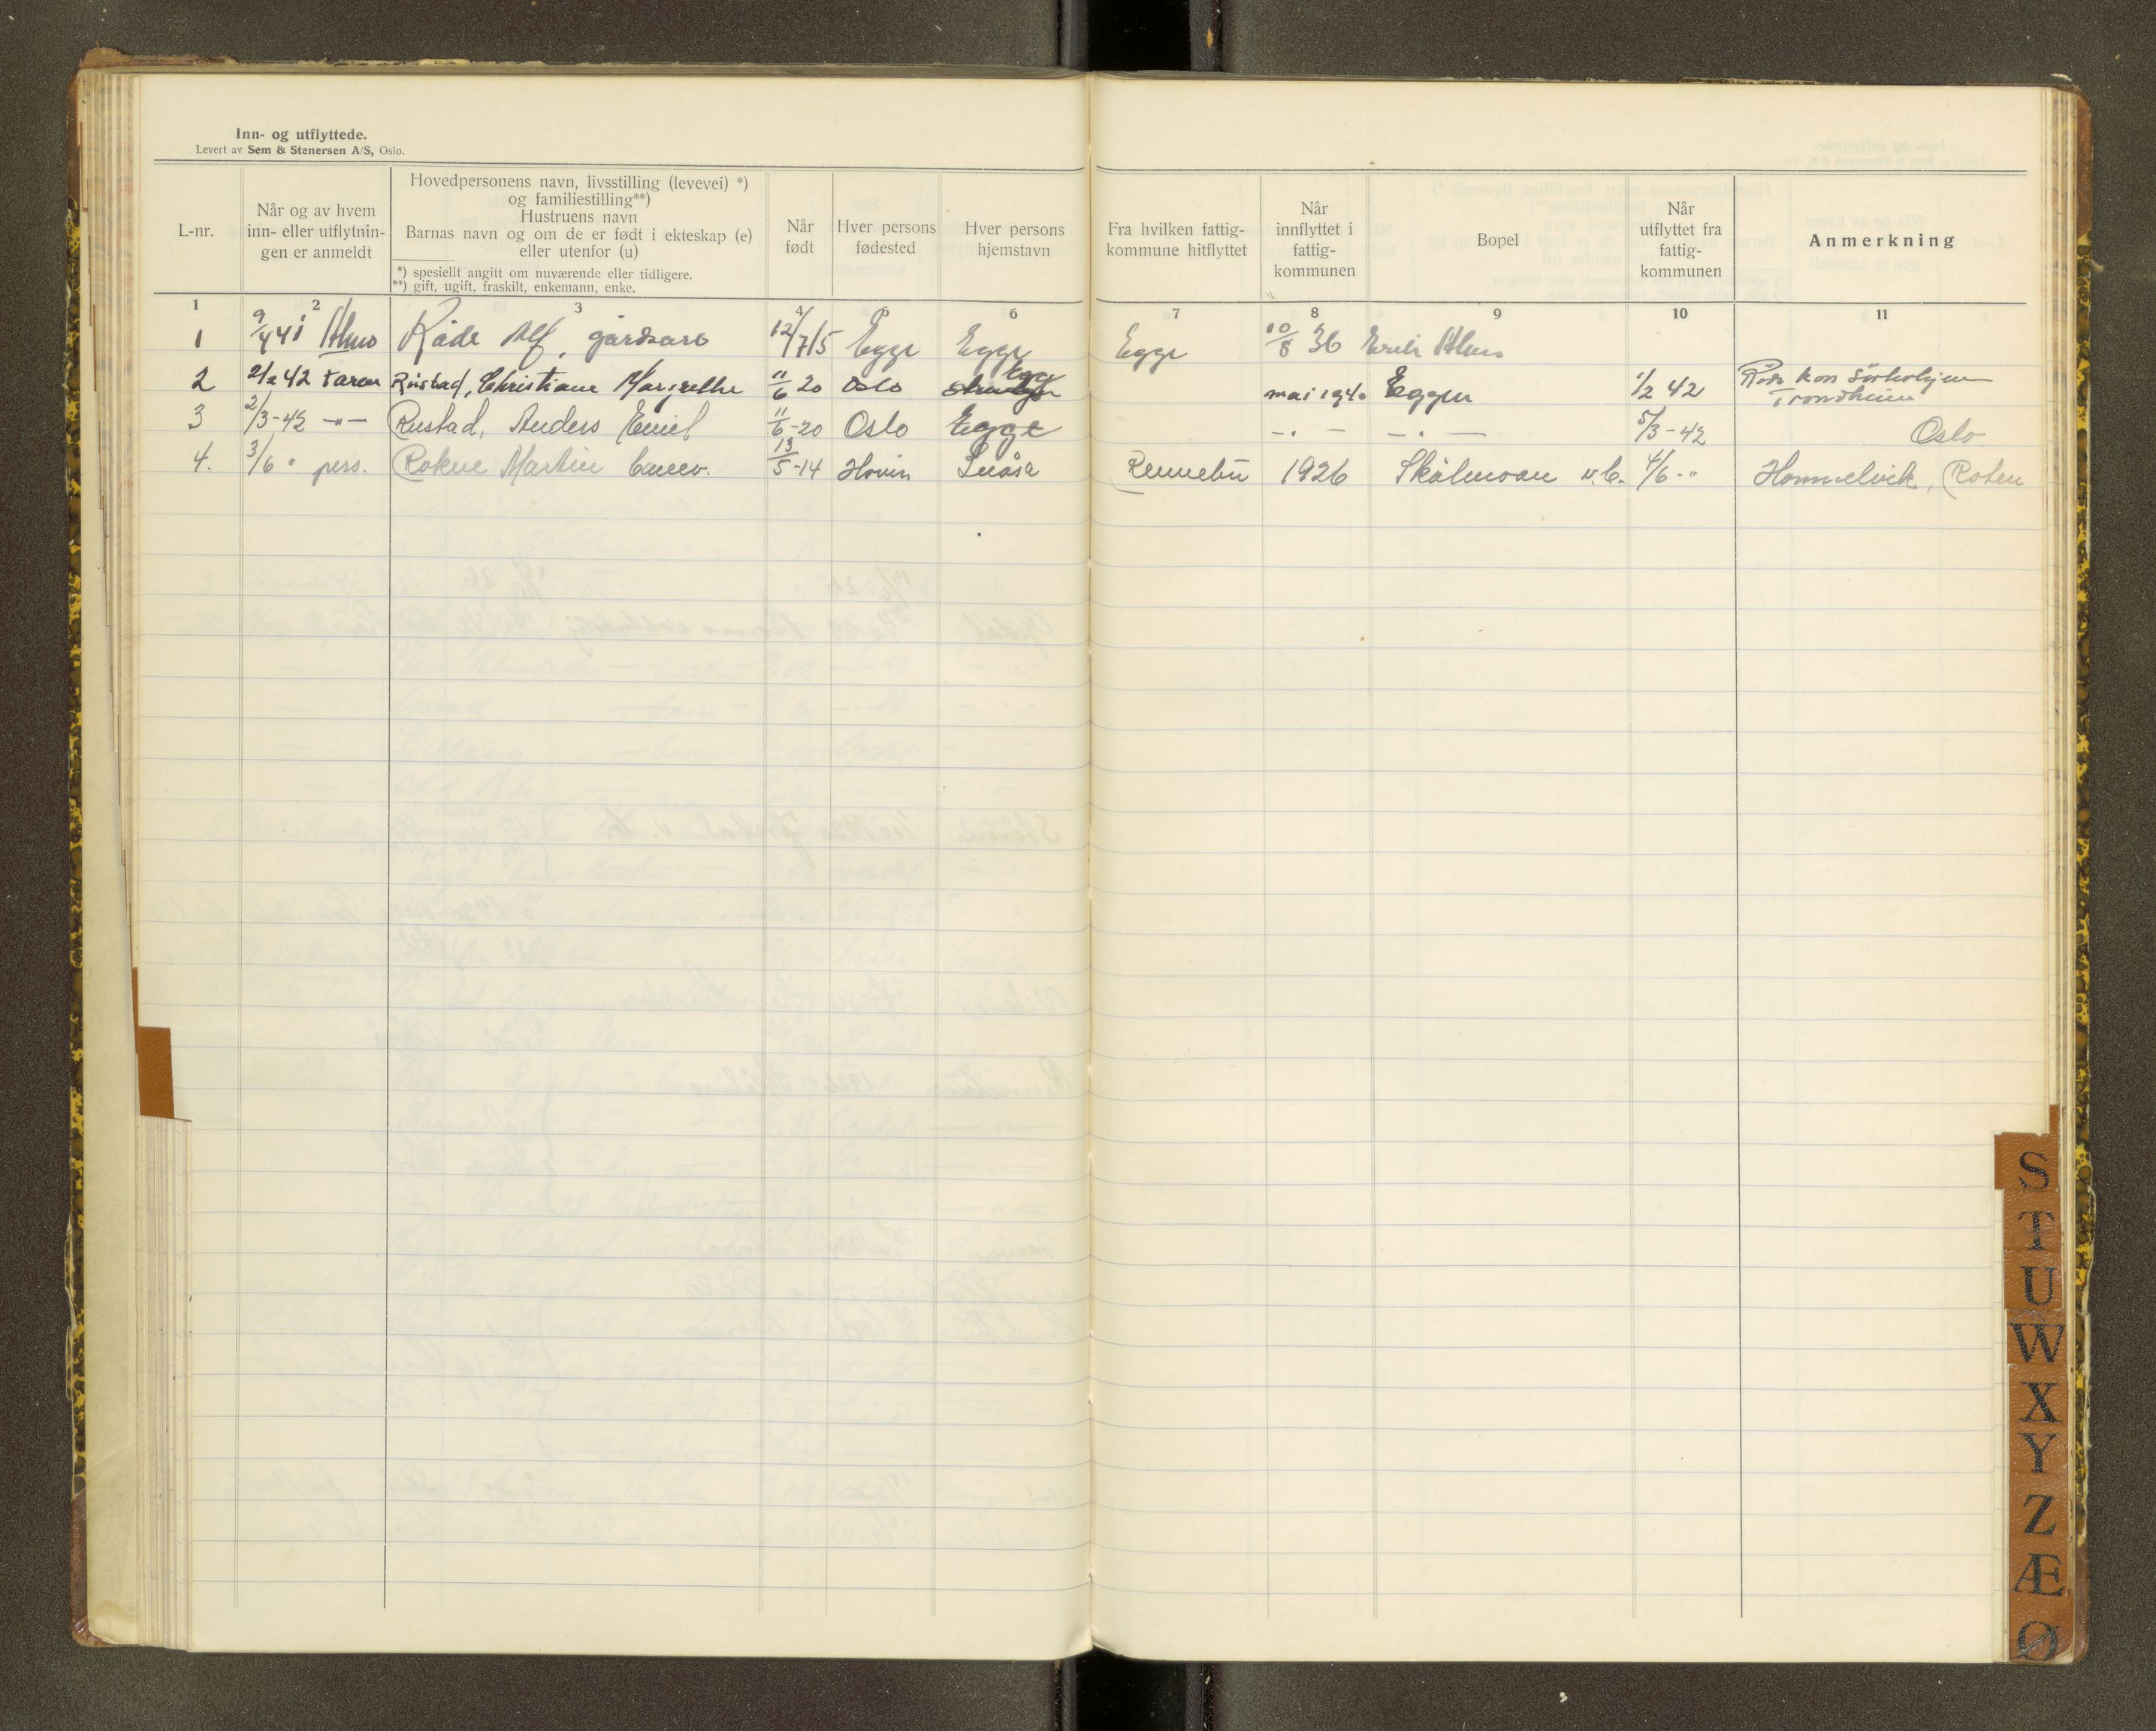 Inn- og utflyttede.
Levert av Sem & Stenersen A/S, Oslo.
L-nr.
Når og av hvem
inn- eller utflytnin-
gen er anmeldt
Hovedpersonens navn, livsstilling (levevei) *)
og familiestilling**)
Hustruens navn
Barnas navn og om de er født i ekteskap (e)
eller utenfor (u)
*) spesielt angitt om nuværende eller tidligere.
**) gift, ugift, fraskilt, enkemann, enke.
Når
født
Hver persons
fødested
Hver persons
hjemstavn
Fra hvilken fattig-
kommune hitflyttet
Når
innflyttet i
fattig-
kommunen
Bopel
Når
utflyttet fra
fattig-
kommunen
Anmerkning
1 2 3 4 5 6 7 8 9 10 11
1 9/4 41 Råde Alf, gårdsarb 12/7 15 Egge Egge Egge 10/8 36
2 2/2 42 Faren Rustad, Christiane Margrethe 11/6 20 Oslo Egge mai 1940 Eggen 1/2 42
Trondheim
3 2/3-42 -"- Rustad, Anders Emil 11/6-20 Oslo Egge -"- -"- 5/3-42 Oslo
4. 3/6 " pers. Rokne Martin 13/5-14 Hovin Snåsa Rennebu 1926 Skålmoen 4/6-" Hommelvik,
S
T
U
W
X
Y
Z
Æ
Ø